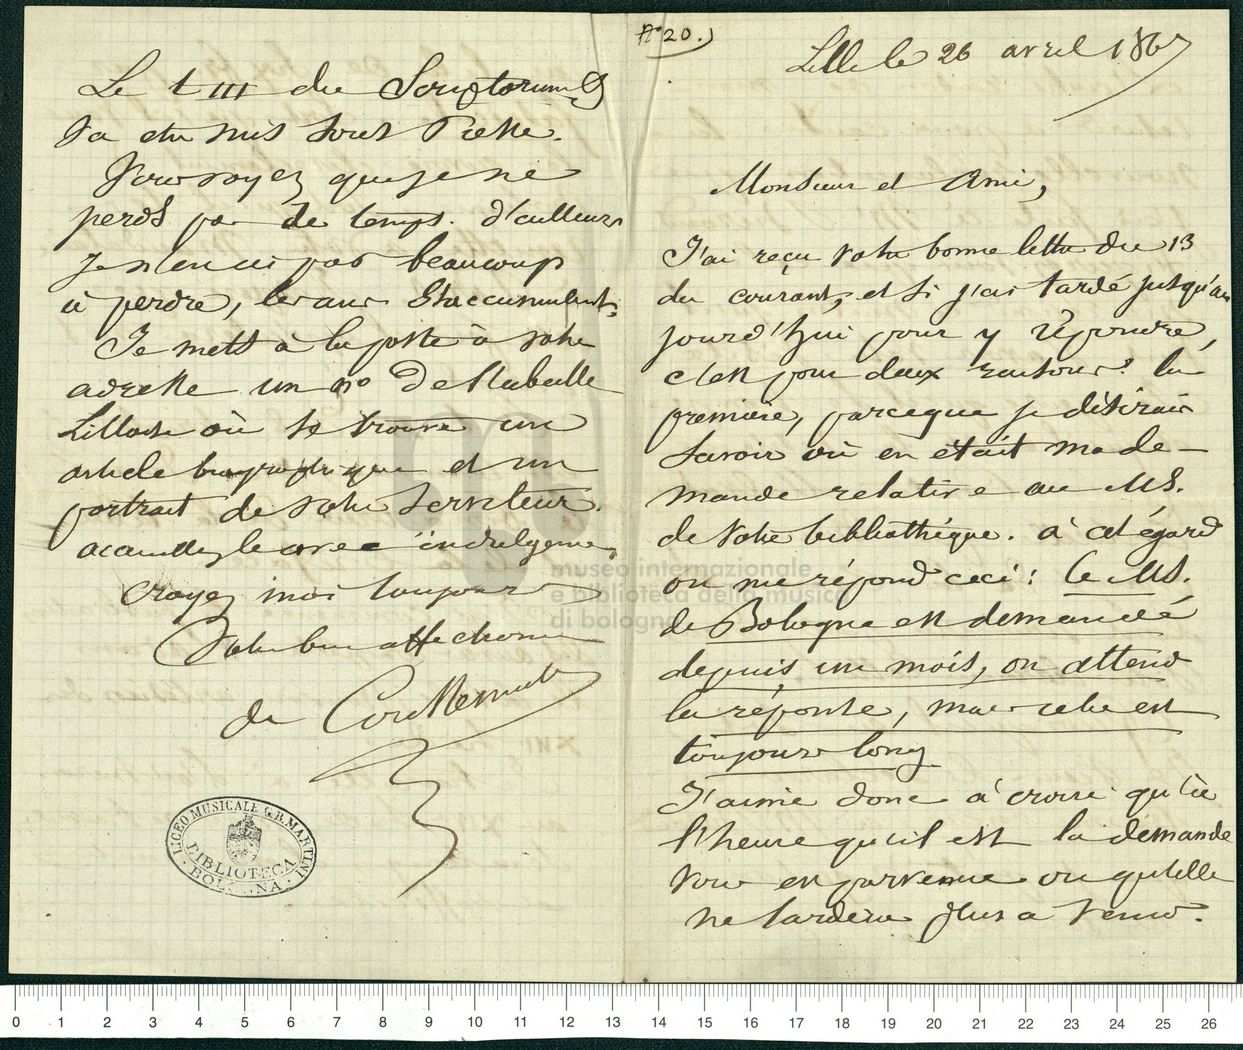 N° 20.)
Lille le 26 avril 1867
Monsieur et Ami,
J'ai reçu votre bonne lettre du 13
du courant, et si j'ai tardé jusqu'au
jourd'hui pour y répondre,
c'est pour deux raisons: la
première, parceque je désirais
savoir où en était ma de-
mande relative au MS.
de votre bibliothèque. à cet égard
on me répond ceci: Ce MS.
de Bologne est demandé
depuis un mois, on attend
la réponse, mais cela est
toujours long
J'aime donc à croire qu'à
l'heure qu'il est la demande
vous est parvenue ou qu'elle
ne tardera plus a venir.
Le t III du Scriptorum
va etre mis sous Presse.
Vous voyez que je ne
perds pas de temps. d'ailleurs
je n'en ai pas beaucoup
à perdre, les ans s'accumulent.
Je mets à la poste à votre
adresse un n° de l'abeille
Lilloise où se trouve un
article biographique et un
portrait de votre serviteur.
accueillez le avec indulgence.
Croyez moi toujours
Votre bien affectionné
de Coussemaker
LICEO MUSICALE G.B. MARTINI
BIBLIOTECA
BOLOGNA
museo internazionale
e biblioteca della musica
di bologna
0 1 2 3 4 5 6 7 8 9 10 11 12 13 14 15 16 17 18 19 20 21 22 23 24 25 26